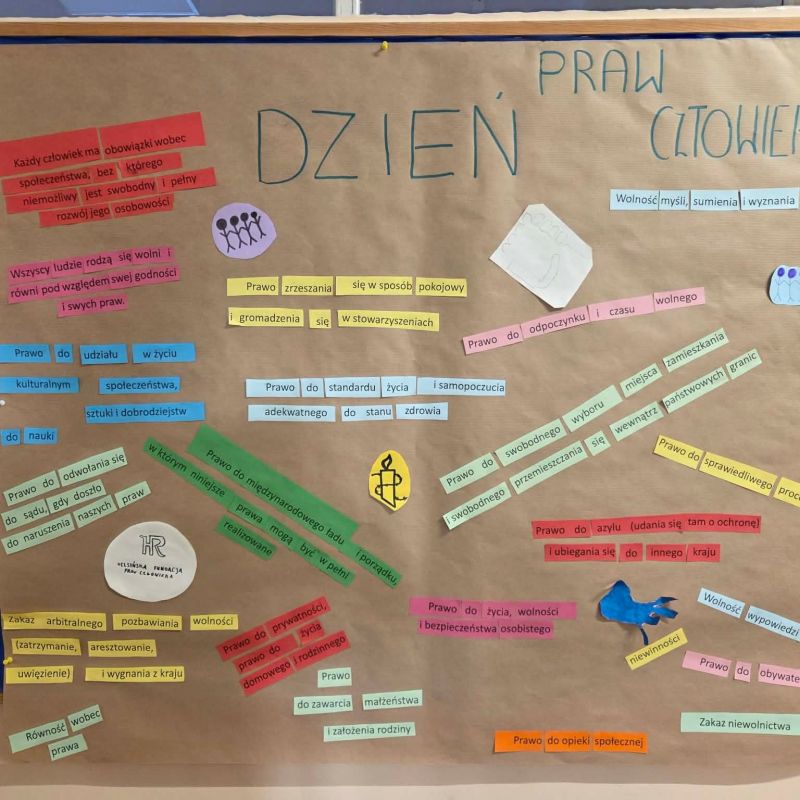 DZIEŃ
PRAW
CZŁOWIEK
Każdy człowiek ma obowiązki wobec
społeczeństwa, bez którego
niemożliwy jest swobodny i pełny
rozwój jego osobowości
Wolność myśli, sumienia i wyznania
Wszyscy ludzie rodzą się wolni i
równi pod względem swej godności
i swych praw.
Prawo zrzeszania się w sposób pokojowy
i gromadzenia się w stowarzyszeniach
Prawo do odpoczynku i czasu wolnego
Prawo do udziału w życiu
kulturalnym społeczeństwa,
sztuki i dobrodziejstw
do nauki
Prawo do standardu życia i samopoczucia
adekwatnego do stanu zdrowia
Prawo do swobodnego wyboru miejsca zamieszkania
i swobodnego przemieszczania się wewnątrz państwowych granic
Prawo do odwołania się
do sądu, gdy doszło
do naruszenia naszych praw
Prawo do międzynarodowego ładu i porządku,
w którym niniejsze prawa mogą być w pełni
realizowane
Prawo do sprawiedliwego
Prawo do azylu (udania się tam o ochronę)
i ubiegania się do innego kraju
HR
HELSIŃSKA FUNDACJA
PRAW CZŁOWIEKA
Zakaz arbitralnego pozbawiania wolności
(zatrzymanie, aresztowanie,
uwięzienie) i wygnania z kraju
Prawo do prywatności,
prawo do życia
domowego i rodzinnego
Prawo do życia, wolności
i bezpieczeństwa osobistego
Wolność wypowiedzi
niewinności
Prawo do obywate
Prawo
do zawarcia małżeństwa
i założenia rodziny
Równość wobec
prawa
Prawo do opieki społecznej
Zakaz niewolnictwa